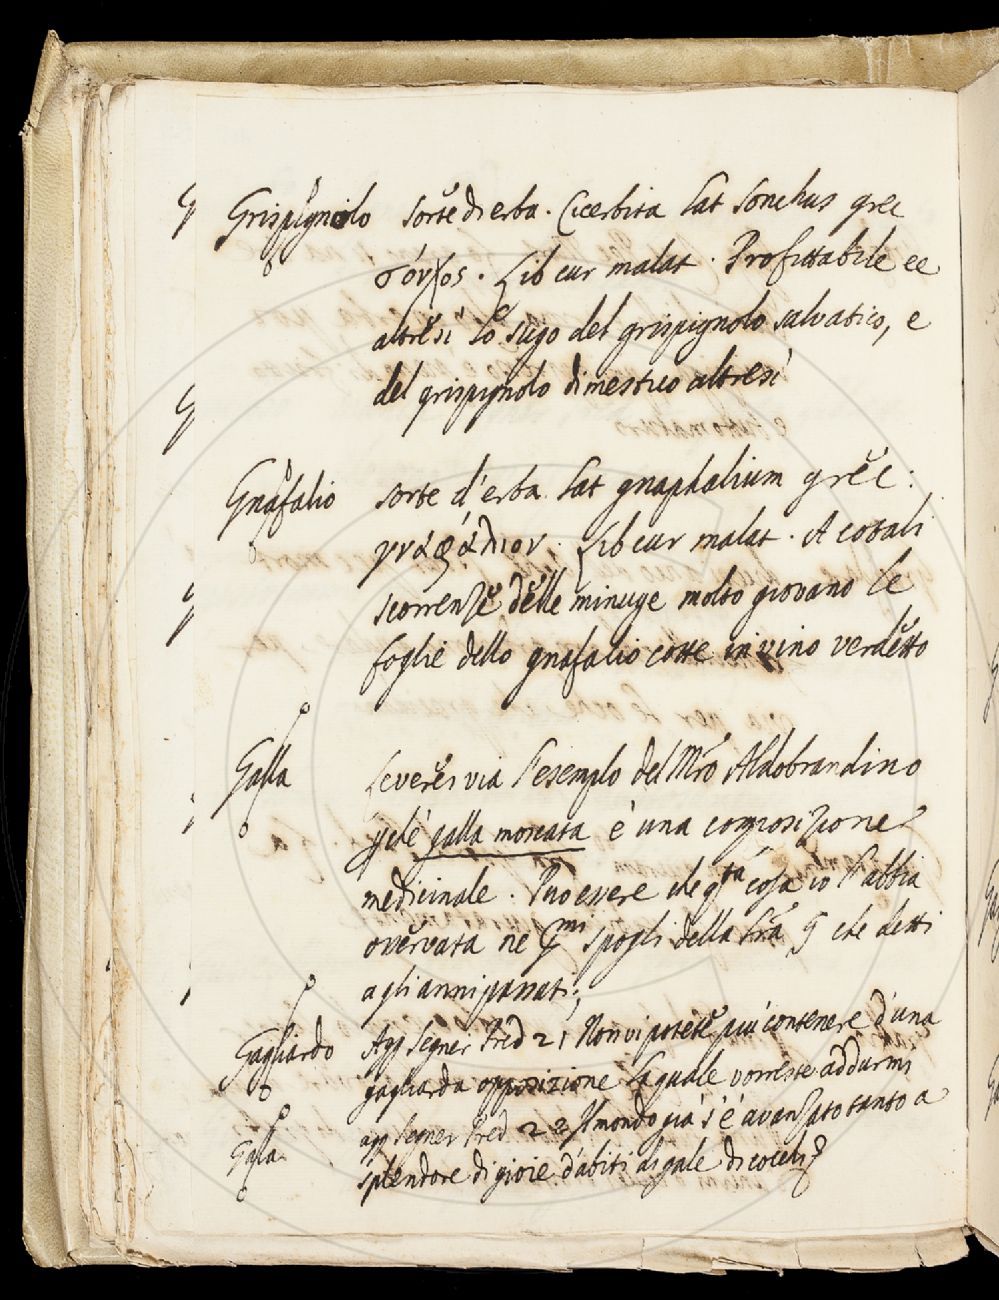 Grispignolo sorte di erba. Cicerbita Lat sonchus grec
σόνχος. Lib cur malat. Profittabile ee
altresi lo sugo del grispignolo salvatico, e
del grispignolo dimestico altresi
Gnafalio sorte d'erba Lat gnaphalium grec:
γνάφάλιον. Lib cur malat. A cotali
scorrenze delle minuge molto giovano le
foglie dello gnafalio cotte in vino verdetto
Galla Leveresi via l'esemplo del Mro Aldobrandino
galla moscata è una composizione
medicinale. Puo essere che qta cosa io l'abbia
osservata ne spogli della che detti
agli anni passati;
Gagliardo App Segner Pred 21 Non vi potete piu contenere d'una
gagliarda opposizione la quale vorreste addurmi
Gala app Segner Pred 22 Il mondo già s'è avanzato tanto a
splendore di gioie d'abiti di gale di cocchi